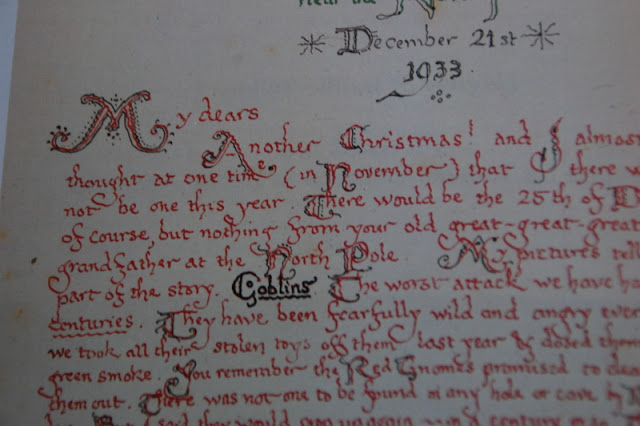 Near the North
December 21st
1933
My dears
Another Christmas! and I almost
thought at one time (in November) that there w
not be one this year. There would be the 25th of D
of course, but nothing from your old great-great-great
grandfather at the North Pole. My pictures tell
part of the story. Goblins. The worst attack we have ha
centuries. They have been fearfully wild and angry ever
we took all their stolen toys off them last year & dosed them
green smoke. You remember the Red Gnomes promised to clea
them out. There was not one to be found in any hole or cave by N
said they would
a century